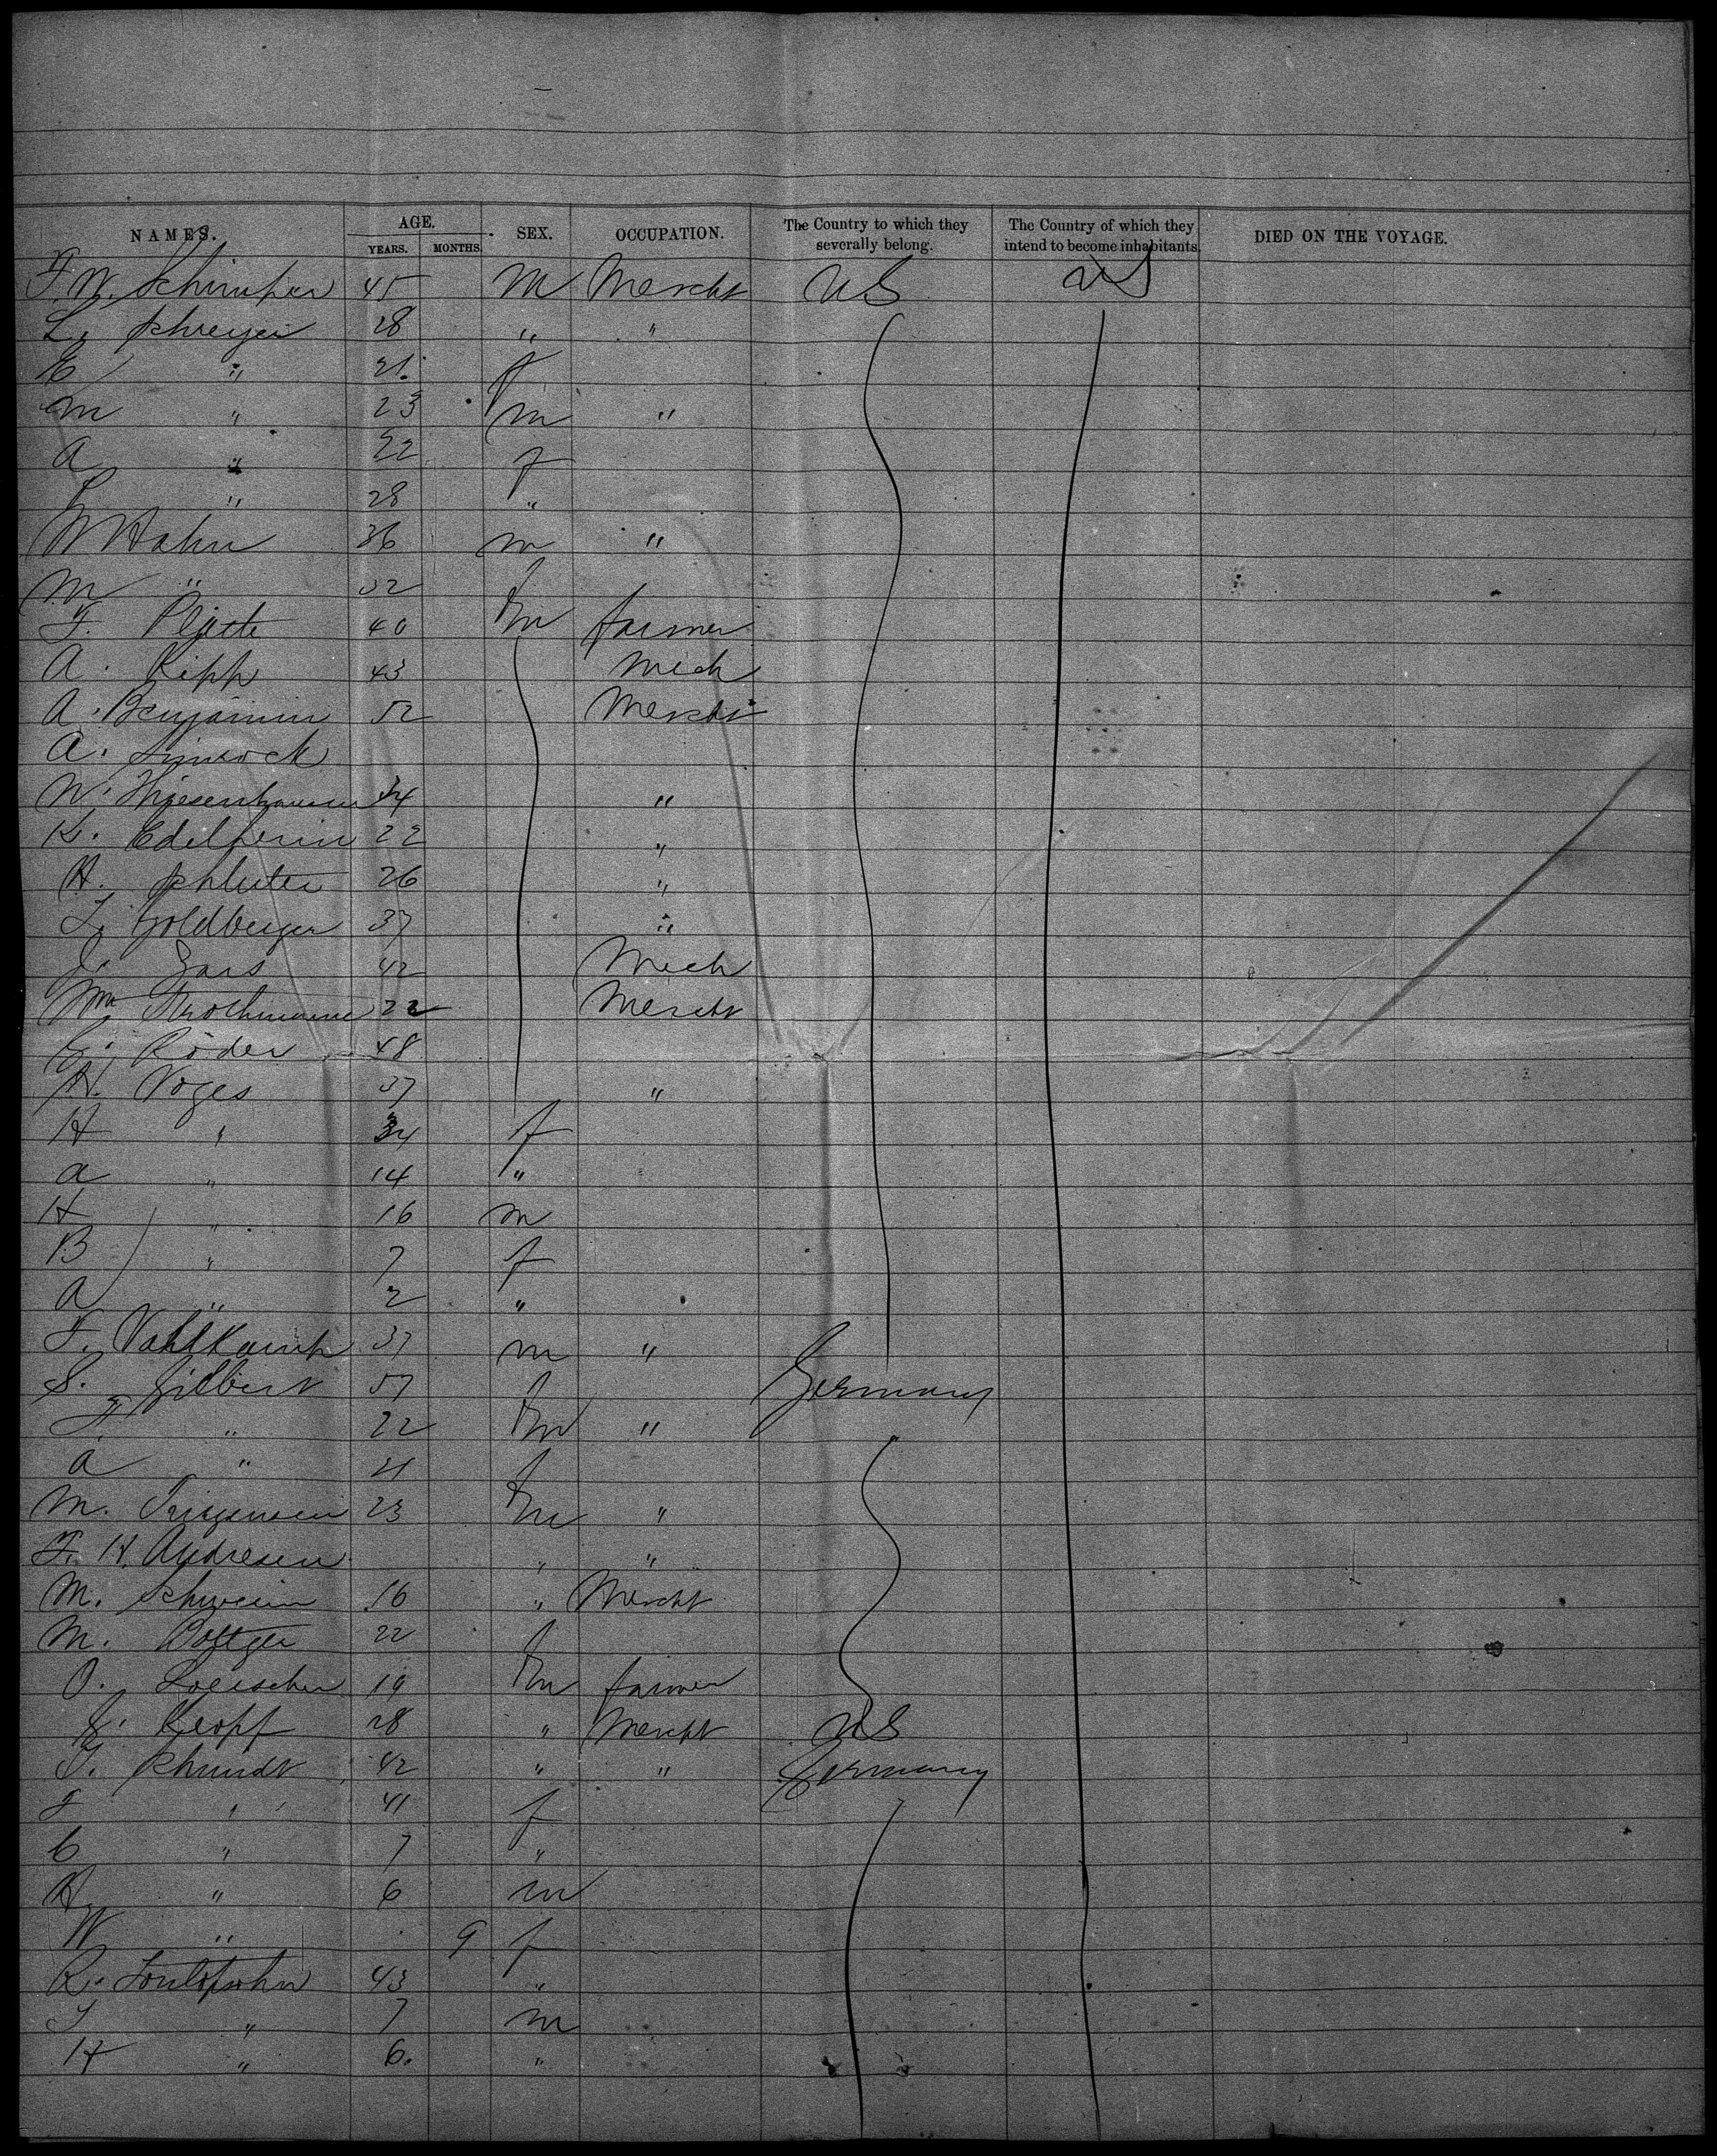 NAMES. AGE. YEARS. MONTHS. SEX. OCCUPATION. The Country to which they severally belong. The Country of which they intend to become inhabitants. DIED ON THE VOYAGE.
F. W. Schimper 45 M Mercht US US
L. Schreyer 28 " "
E " 21 f
M " 23 m "
A " 22 f
" 28 "
W Hahn 36 m "
M " 32 f
F. Platte 40 m farmer
A. Kipp 43 Mech
A. Benjamin 52 Mercht
A. Simrock
W. 34 "
K. 22 "
H. Schluter 26 "
L. Goldberger 37 "
J. 42 Mech
Wm Strothmann 22 Mercht
G. Röder 48
H. Voges 37 "
H " 34 f
A " 14 "
H " 16 m
B " 7 f
A " 2 "
F. Vahlkamp 37 m "
S. Gilbert 57 f Germany
F. " 22 m "
A " 21 f
M. 23 m "
F. H. Andresen " "
M. Schwerin 16 " Mercht
M. Bottger 22 f
O. Loescher 19 m farmer
G. Kropf 28 " Mercht US
F. Schmidt 42 " " Germany
F " 41 f
C " 7 "
H " 6 m
W " 9 f
R. 43 "
" 7 m
H " 6 "